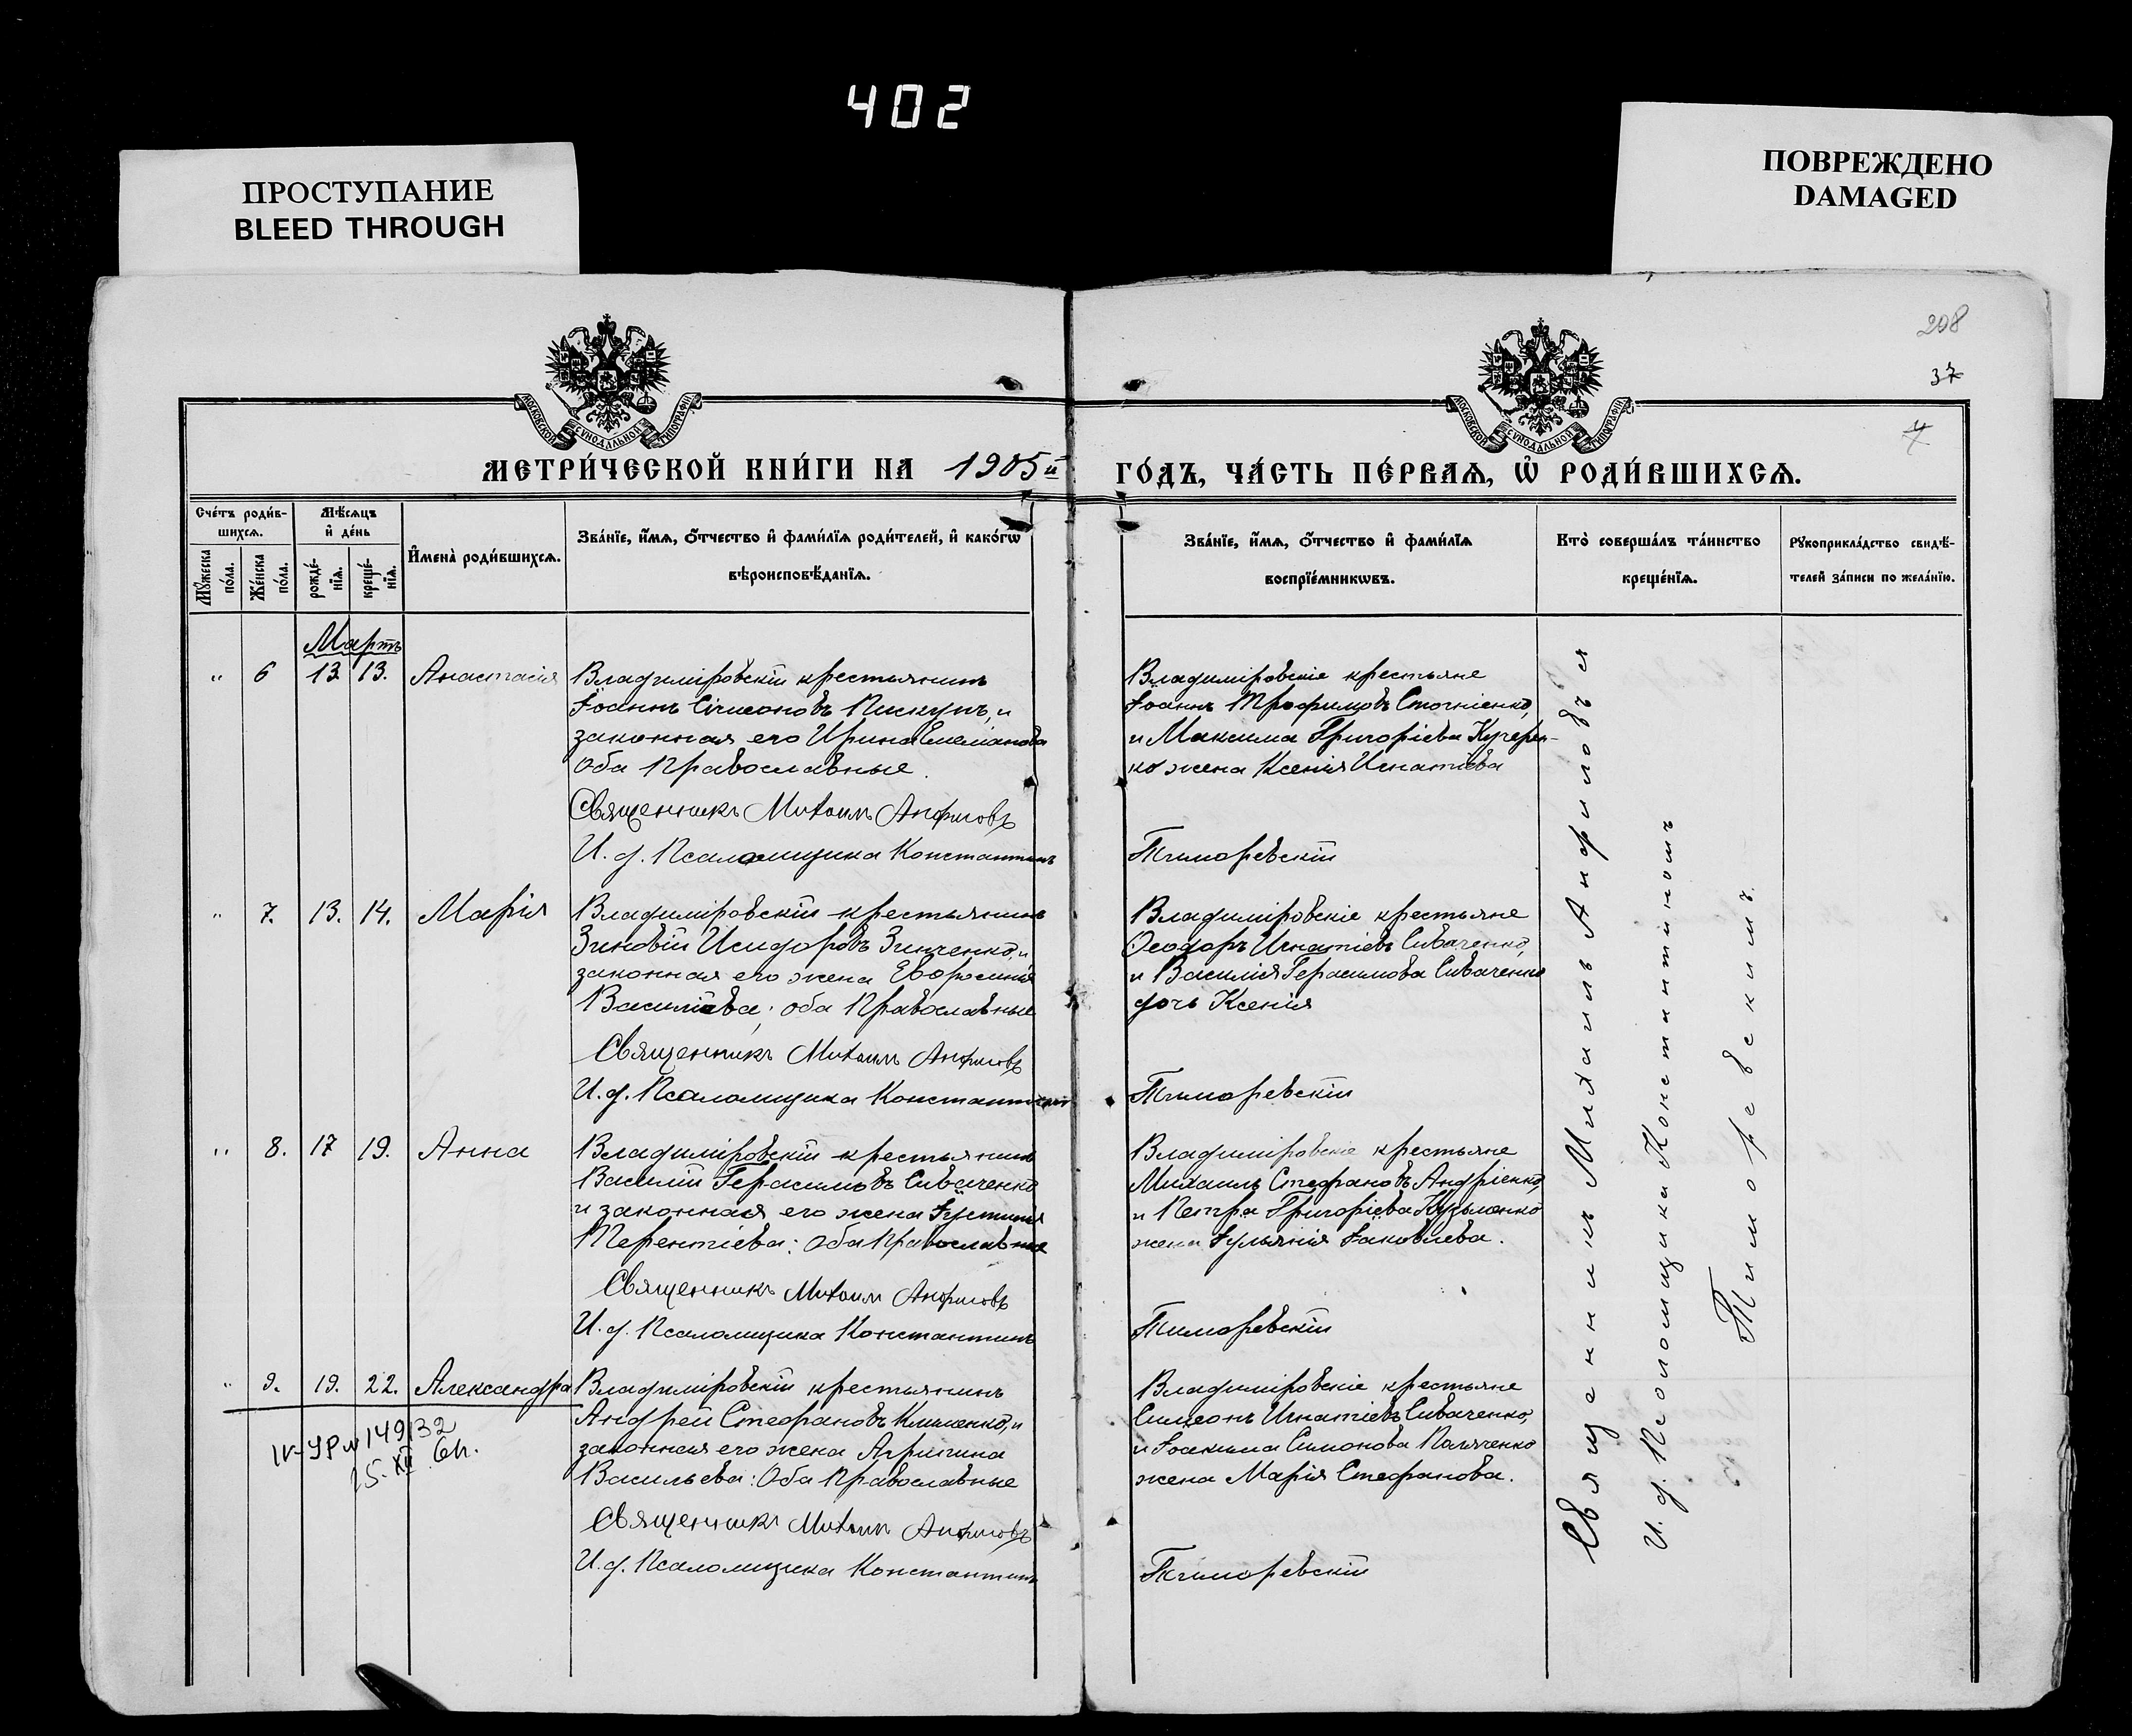 402
ПРОСТУПАНИЕ
BLEED THROUGH
ПОВРЕЖДЕНО
DAMAGED
208
37
4
МОСКОВСКОЙ СУНОДАЛЬНОЙ ТИПОГРАФІИ
МОСКОВСКОЙ СУНОДАЛЬНОЙ ТИПОГРАФІИ
МЕТРИ́ЧЕСКОЙ КНИ́ГИ НА 1905й
ГО́ДЪ, ЧА́СТЬ ПЕ́РВАѦ, Ѡ҆ РОДИ́ВШИХСѦ.
Сче́тъ роди́в-
шихсѧ.
Мѣ́сѧцъ
и҆ де́нь
Мꙋ́жеска
по́ла.
Же́нска
по́ла.
рожде́-
нїѧ.
креще́-
нїѧ.
И҆мена̀ роди́вшихсѧ.
Зва́нїе, и҆́мѧ, ѻ҆́тчество и҆ фами́лїѧ роди́телей, и҆ како́гѡ
вѣроисповѣ́данїѧ.
Зва́нїе, и҆́мѧ, ѻ҆́тчество и҆ фами́лїѧ
воспрїе́мникѡвъ.
Кто̀ соверша́лъ та́инство
креще́нїѧ.
Рꙋкоприкла́дство свидѣ́-
телей за́писи по жела́нїю.
Мартъ
" 6 13 13. Анастасія
Владиміровскій крестьянинъ
Іоаннъ Сімеоновъ Пискунъ, и
законная его Ирина Емеліанова
оба Православные.
Священникъ Михаилъ Анфиловъ
И. д. Псаломщика Константинъ
Владиміровскіе крестьяне
Іоаннъ Трофимовъ Стогніенко,
и Максима Григоріева Кучерен-
ко жена Ксенія Игнатіева
Тиморевскій
" 7. 13. 14. Марія
Владиміровскій крестьянинъ
Зиновій Исидоровъ Зинченко, и
законная его жена Евфросинія
Василіева; оба Православные
Священникъ Михаилъ Анфиловъ
И. д. Псаломщика Константинъ
Владиміровскіе крестьяне
Ѳеодоръ Игнатіевъ Сиваченко,
и Василія Герасимова Сиваченко
дочь Ксенія
Тиморевскій
" 8. 17 19. Анна
Владиміровскій крестьянинъ
Василій Герасимовъ Сиваченко
и законная его жена Іустинія
Терентіева: Оба Православные
Священникъ Михаилъ Анфиловъ
И. д. Псаломщика Константинъ
Владиміровскіе крестьяне
Михаилъ Стефановъ Андріенко,
и Петра Григоріева Кузьменко
жена Іульянія Іаковлева.
Тиморевскій
" 9. 19. 22. Александра
Владиміровскій крестьянинъ
Андрей Стефановъ Клименко, и
законная его жена Агрипина
Васильева: Оба Православные
Священникъ Михаилъ Анфиловъ
И. д. Псаломщика Константинъ
149132
Владиміровскіе крестьяне
Симеонъ Игнатіевъ Сиваченко,
и Іоакима Симонова
жена Марія Стефанова.
Тиморевскій
Священникъ Михаилъ Анфиловъ
И. д. Псаломщика Константинъ
Тиморевскимъ.